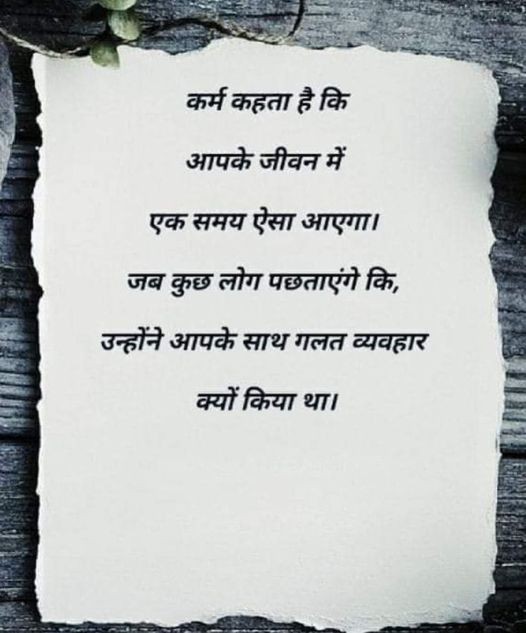 कर्म कहता है कि
आपके जीवन में
एक समय ऐसा आएगा।
जब कुछ लोग पछताएंगे कि,
उन्होंने आपके साथ गलत व्यवहार
क्यों किया था।